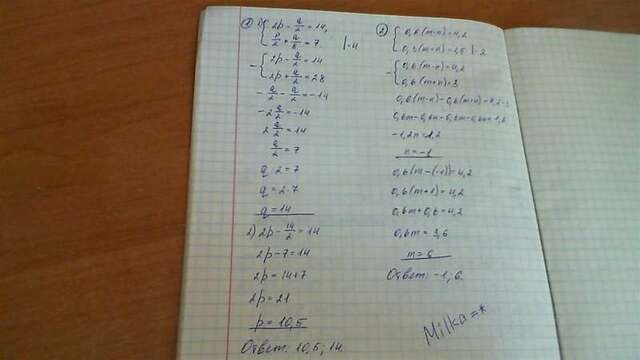 ① 1) { 2p - q/2 = 14,
{ p/2 + q/8 = 7 | ·4
- { 2p - q/2 = 14
{ 2p + q/2 = 28
- q/2 - q/2 = -14
-2 q/2 = -14
2 q/2 = 14
q/2 = 7
q : 2 = 7
q = 2·7
q = 14
2) 2p - 14/2 = 14
2p - 7 = 14
2p = 14+7
2p = 21
p = 10,5
Ответ: 10,5; 14.
② { 0,6(m-n) = 4,2
{ 0,3(m+n) = 1,5 | ·2
- { 0,6(m-n) = 4,2
{ 0,6(m+n) = 3
0,6(m-n) - 0,6(m+n) = 4,2-3
0,6m - 0,6n - 0,6m - 0,6n = 1,2
-1,2n = 1,2
n = -1
0,6(m-(-1)) = 4,2
0,6(m+1) = 4,2
0,6m + 0,6 = 4,2
0,6m = 3,6
m = 6
Ответ: -1; 6.
Milka =*